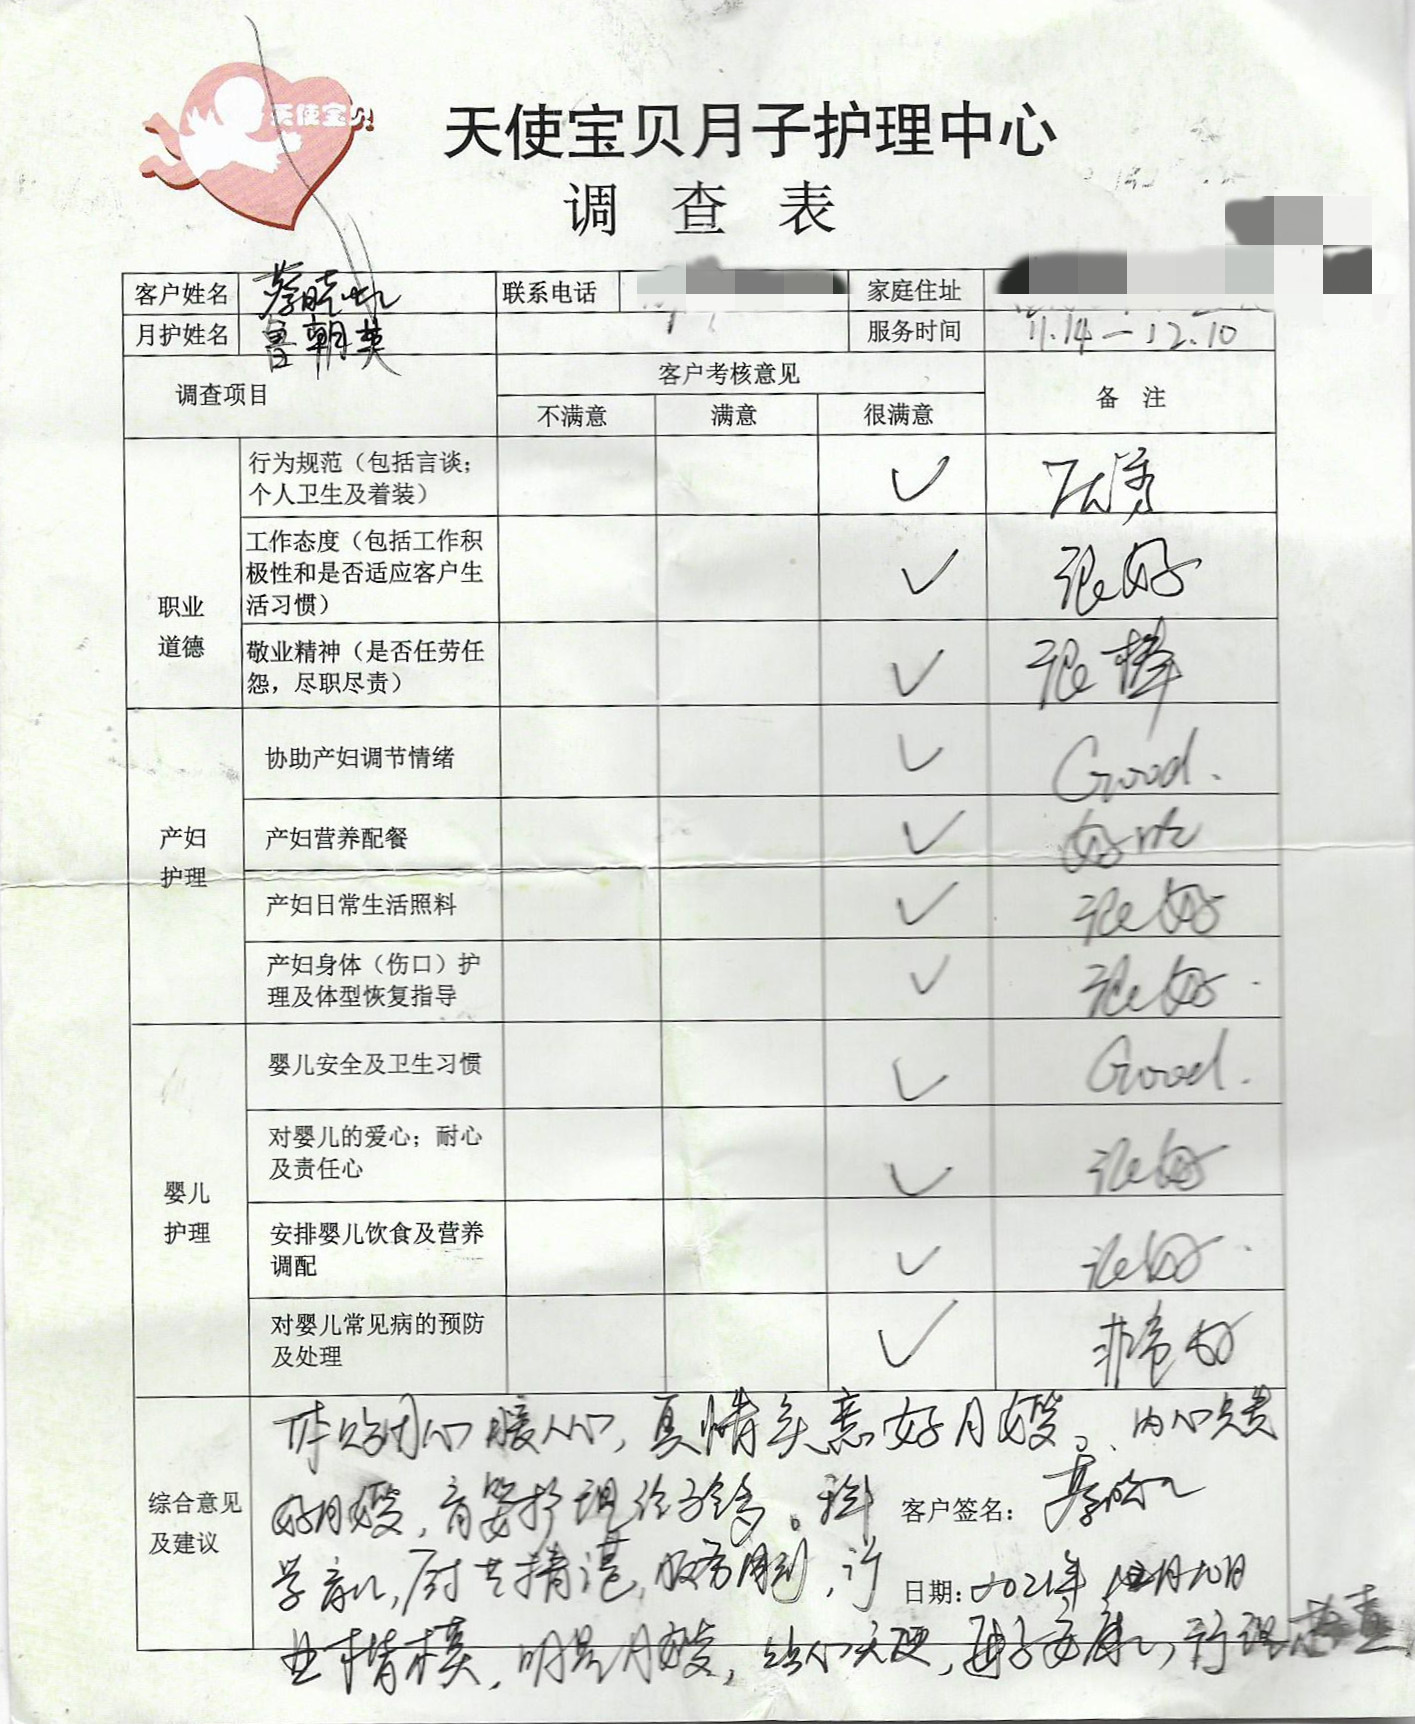 天使宝贝
天使宝贝月子护理中心
调 查 表
客户姓名 联系电话 家庭住址
月护姓名 鲁朝英 服务时间 11.14—12.10
调查项目 客户考核意见 备 注
不满意 满意 很满意
职业道德
行为规范（包括言谈；
个人卫生及着装） ✓ 优秀
工作态度（包括工作积
极性和是否适应客户生 ✓ 很好
活习惯）
敬业精神（是否任劳任
怨，尽职尽责） ✓ 很棒
产妇护理
协助产妇调节情绪 ✓ Good.
产妇营养配餐 ✓ 好吃
产妇日常生活照料 ✓ 很好
产妇身体（伤口）护
理及体型恢复指导 ✓ 很好.
婴儿护理
婴儿安全及卫生习惯 ✓ Good.
对婴儿的爱心；耐心
及责任心 ✓ 很好
安排婴儿饮食及营养
调配 ✓ 很好.
对婴儿常见病的预防
及处理 ✓ 非常好
综合意见及建议
体贴用心暖人心，真情实意好月嫂。内心点赞
好月嫂，育婴护理 科 客户签名：
学育儿，厨艺精湛，服务周到， 日期：2021年12月10日
明星月嫂，